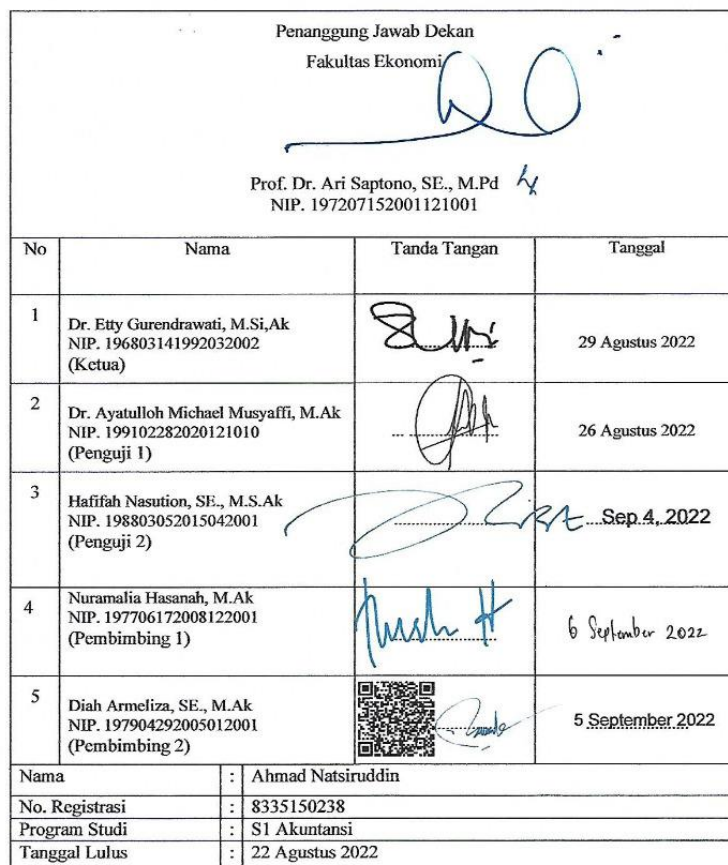 Penanggung Jawab Dekan
Fakultas Ekonomi
Prof. Dr. Ari Saptono, SE., M.Pd
NIP. 197207152001121001
No Nama Tanda Tangan Tanggal
1 Dr. Etty Gurendrawati, M.Si,Ak
NIP. 196803141992032002 29 Agustus 2022
(Ketua)
2 Dr. Ayatulloh Michael Musyaffi, M.Ak
NIP. 199102282020121010 26 Agustus 2022
(Penguji 1)
3 Hafifah Nasution, SE., M.S.Ak
NIP. 198803052015042001 Sep 4, 2022
(Penguji 2)
4 Nuramalia Hasanah, M.Ak
NIP. 197706172008122001 6 September 2022
(Pembimbing 1)
5 Diah Armeliza, SE., M.Ak
NIP. 197904292005012001 5 September 2022
(Pembimbing 2)
Nama : Ahmad Natsiruddin
No. Registrasi : 8335150238
Program Studi : S1 Akuntansi
Tanggal Lulus : 22 Agustus 2022